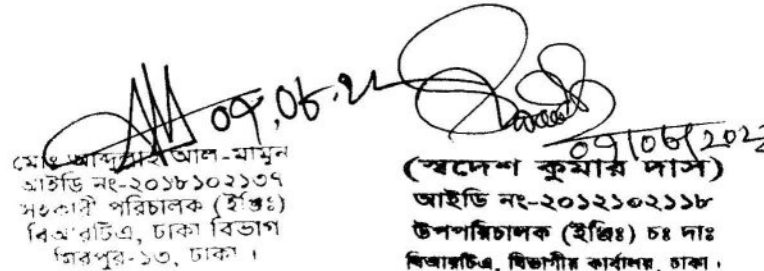 ০৭.০৬.২২
মোঃ আব্দুল্লাহ আল-মামুন
আইডি নং-২০১৮১০২১৩৭
সহকারী পরিচালক (ইঞ্জিঃ)
বিআরটিএ, ঢাকা বিভাগ
মিরপুর-১৩, ঢাকা ।
০৭/০৬/২০২২
(স্বদেশ কুমার দাস)
আইডি নং-২০১২১০২১১৮
উপপরিচালক (ইঞ্জিঃ) চঃ দাঃ
বিআরটিএ, বিভাগীয় কার্যালয়, ঢাকা ।